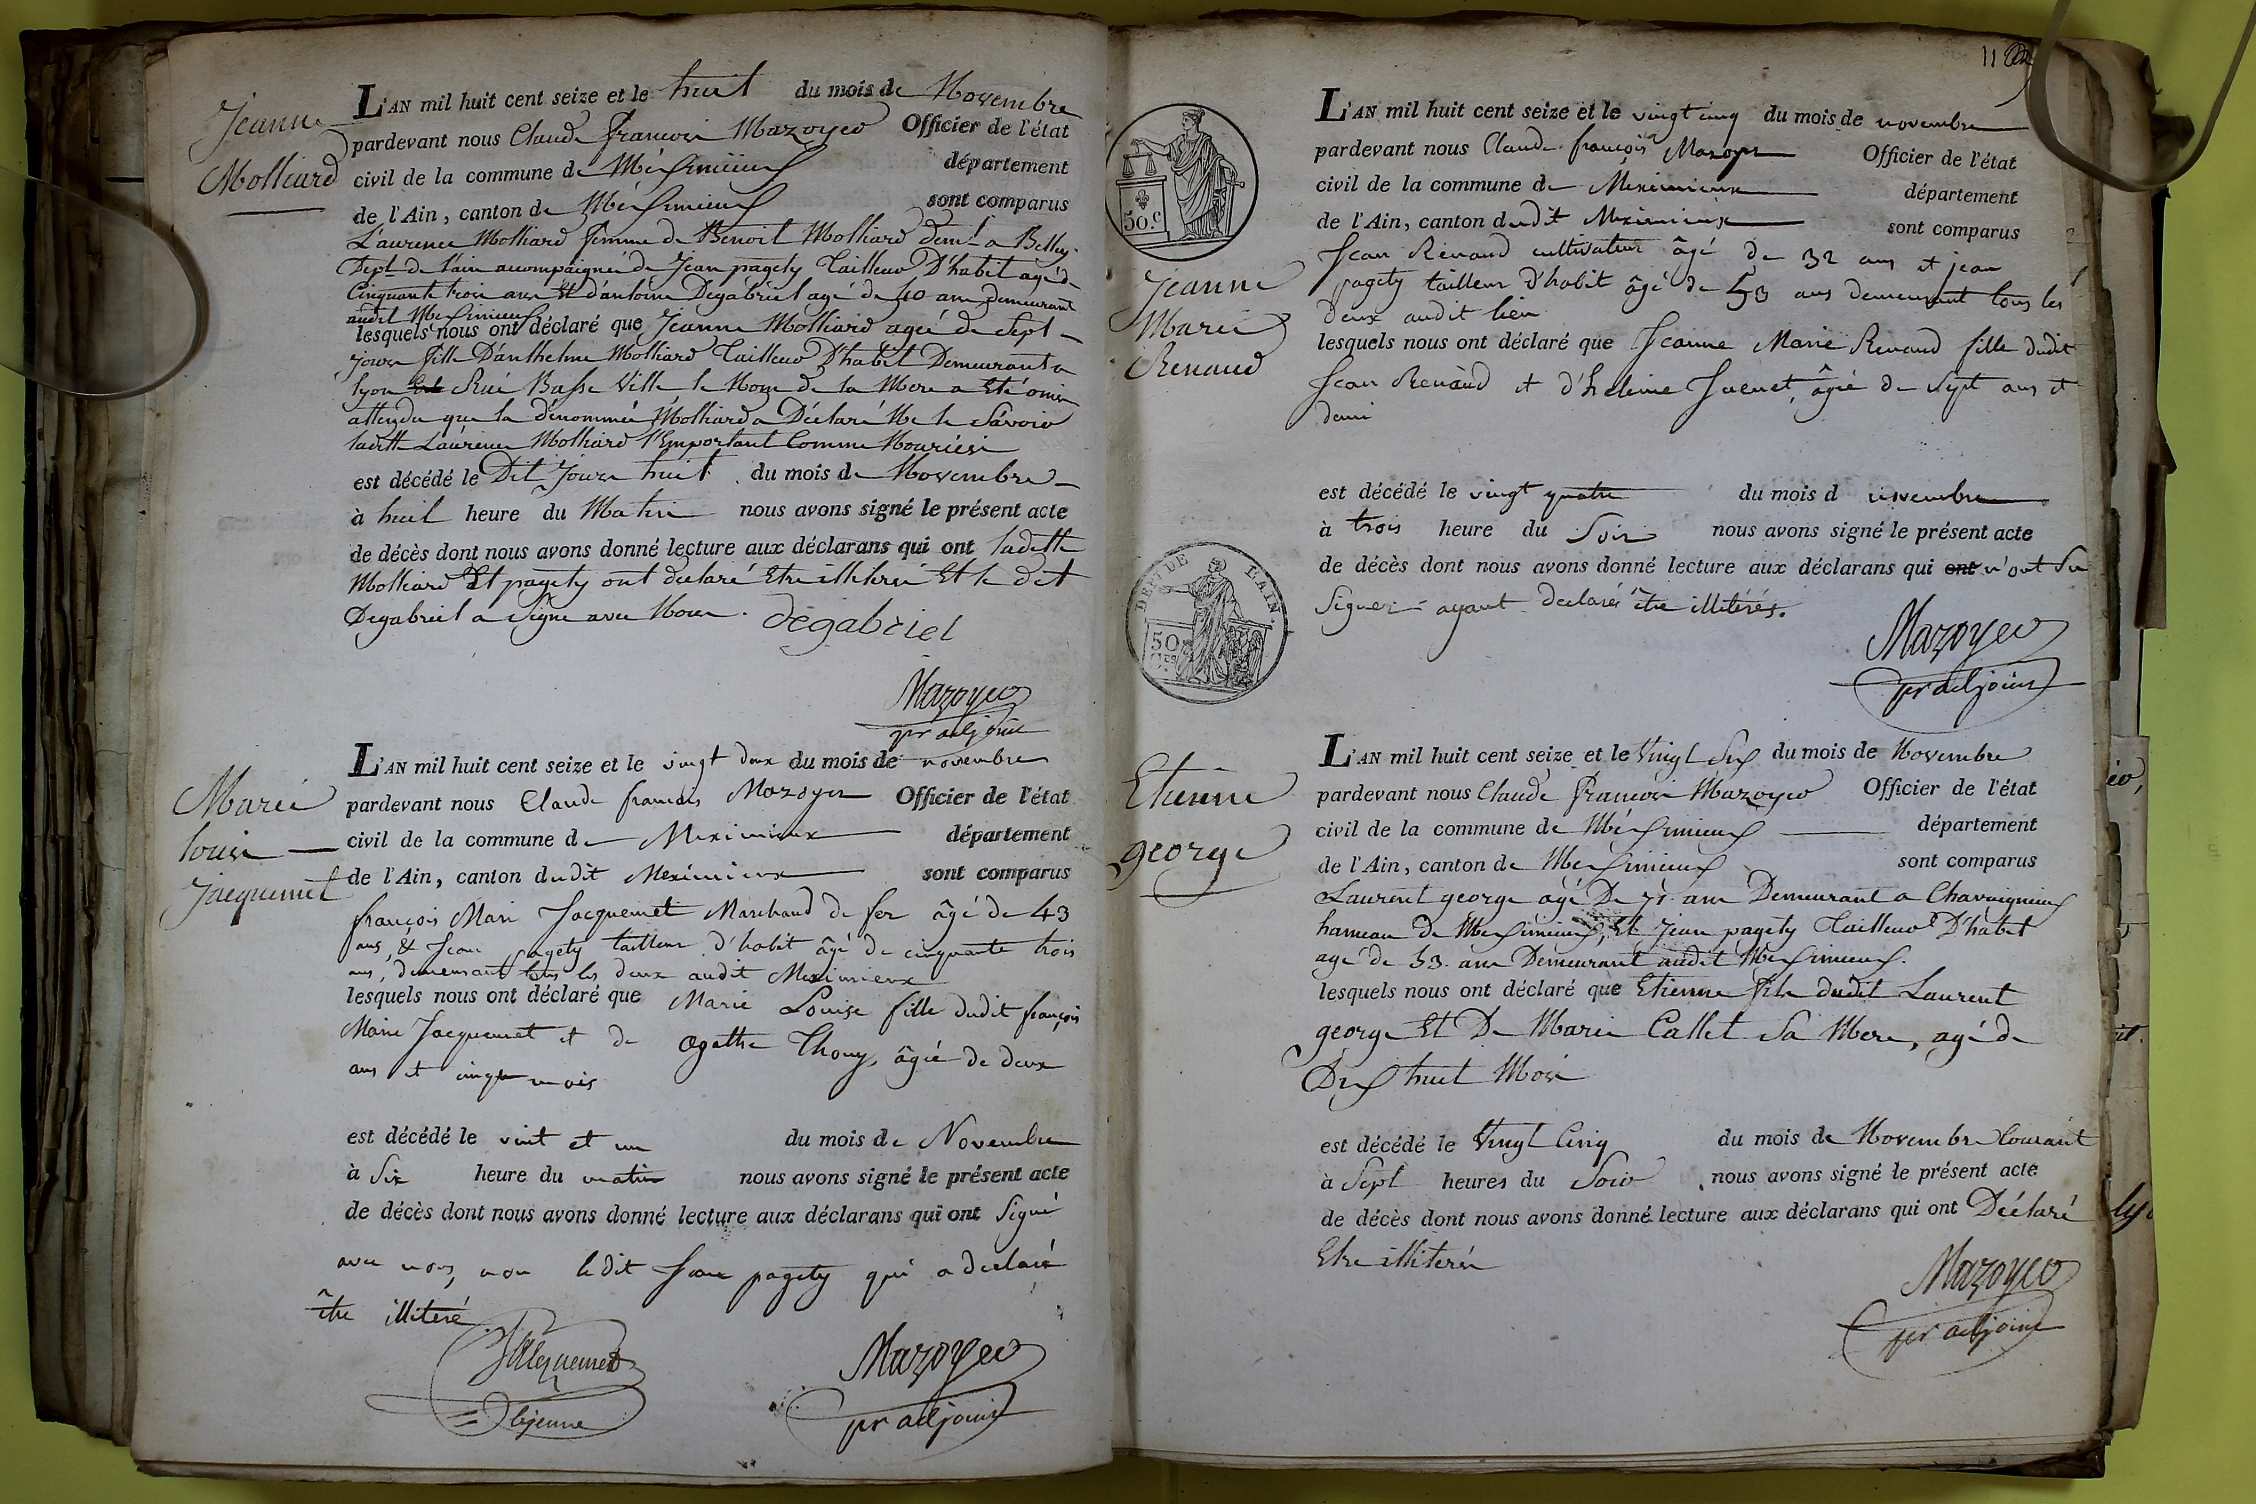 Jeanne
Molliard
L'AN mil huit cent seize et le huit du mois de Novembre
pardevant nous Claude francois Mazoyer Officier de l'état
civil de la commune de Meximieux département
de l'Ain, canton de Meximieux sont comparus
Laurence Molliard femme de Benoit Molliard demt a Belley
Dept de l'ain accompagnée de Jean pagety Tailleur D'habit agé de
Cinquante trois ans Et d'antoine Degabriel agé de 40 ans demeurant
audit Meximieux
lesquels nous ont déclaré que Jeanne Molliard agée de Sept
jours fille D'anthelme Molliard Tailleur D'habit Demeurant a
lyon Rue Basse Ville le Nom de la Mere a Eté omis
attendu que la dénommée Molliard a Déclaré Ne le Savoir
laditte Laurence Molliard l'Emportant Comme Nourice
est décédé le Dit Jour huit du mois de Novembre
à huit heure du Matin nous avons signé le présent acte
de décès dont nous avons donné lecture aux déclarans qui ont ladette
Molliard Et pagety ont declaré Etre illiteré Et le dit
Degabriel a Signé avec Nous. degabriel
Mazoyer
pr adjoint
Marie
louise
Jacquemet
L'AN mil huit cent seize et le vingt deux du mois de novembre
pardevant nous Claude francois Mazoyer Officier de l'état
civil de la commune de Meximieux département
de l'Ain, canton dudit Meximieux sont comparus
françois Marie Jacquemet Marchand de fer âgé de 43
ans, & Jean pagety tailleur d'habit âgé de cinquante trois
ans, demeurant tous les deux audit Meximieux
lesquels nous ont déclaré que Marie Louise fille dudit françois
Marie Jacquemet et de Agathe Thouy, âgée de deux
ans et cinq mois
est décédé le vint et un du mois de Novembre
à Six heure du matin nous avons signé le présent acte
de décès dont nous avons donné lecture aux déclarans qui ont Signé
avec nous, non ledit Jean pagety qui a declaré
être illiteré
Jacquemet
lejeune
Mazoyer
pr adjoint
11
50.c
DEPt DE L'AIN.
50
Ces
Jeanne
Marie
Renaud
L'AN mil huit cent seize et le vingt cinq du mois de novembre
pardevant nous Claude françois Mazoyer Officier de l'état
civil de la commune de Meximieux département
de l'Ain, canton dudit Meximieux sont comparus
Jean Renaud cultivateur âgé de 32 ans et jean
pagety tailleur d'habit âgé de 53 ans demeurant tous les
deux audit lieu
lesquels nous ont déclaré que Jeanne Marie Renaud fille dudit
Jean Renaud et d'heleine Juenet, âgée de Sept ans et
demi
est décédé le vingt quatre du mois d novembre
à trois heure du Soir nous avons signé le présent acte
de décès dont nous avons donné lecture aux déclarans qui ont n'ont Su
Signer ayant declarés être illitérés.
Mazoyer
pr adjoint
Etienne
george
L'AN mil huit cent seize et le Vingt Six du mois de Novembre
pardevant nous Claude francois Mazoyer Officier de l'état
civil de la commune de Meximieux département
de l'Ain, canton de Meximieux sont comparus
Laurent george agé De 71 ans Demeurant a Chavaigneux
hameau de Meximieux, Et Jean pagety Tailleur D'habit
agé de 53 ans Demeurant audit Meximieux.
lesquels nous ont déclaré que Etienne fils dudit Laurent
george Et De Marie Callet Sa Mere, agé de
Dix huit Mois
est décédé le Vingt Cinq du mois de Novembre Courant
à Sept heures du Soir nous avons signé le présent acte
de décès dont nous avons donné lecture aux déclarans qui ont Déclaré
Etre illiterés
Mazoyer
pr adjoint